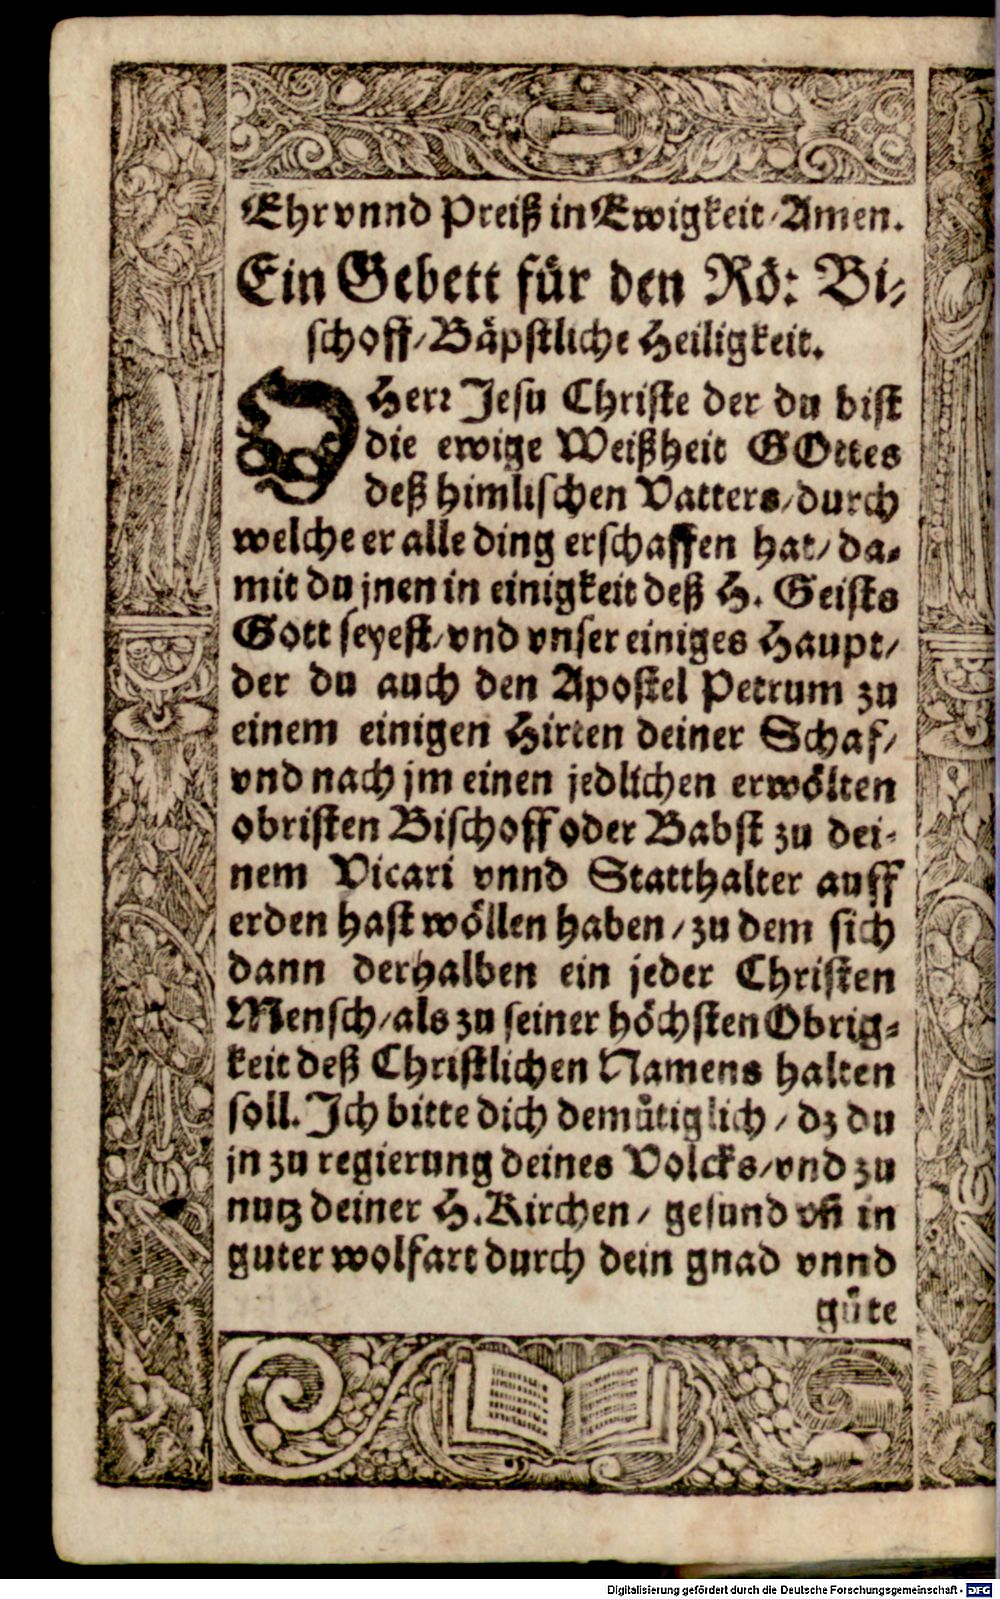 Ehr vnnd Preiß in Ewigkeit / Amen.
Ein Gebett für den Rö: Bi⸗
schoff / Bäpstliche Heiligkeit.
O Herr Jesu Christe der du bist
die ewige Weißheit GOttes
deß himlischen Vatters / durch
welche er alle ding erschaffen hat / da⸗
mit du jnen in einigkeit deß H. Geists
Gott seyest / vnd vnser einiges Haupt /
der du auch den Apostel Petrum zu
einem einigen Hirten deiner Schaf /
vnd nach jm einen jedlichen erwölten
obristen Bischoff oder Babst zu dei⸗
nem Vicari vnnd Statthalter auff
erden hast wöllen haben / zu dem sich
dann derhalben ein jeder Christen
Mensch / als zu seiner höchsten Obrig⸗
keit deß Christlichen Namens halten
soll. Ich bitte dich demůtiglich / dz du
jn zu regierung deines Volcks / vnd zu
nutz deiner H. Kirchen / gesund vñ in
guter wolfart durch dein gnad vnnd
gůte
Digitalisierung gefördert durch die Deutsche Forschungsgemeinschaft - DFG